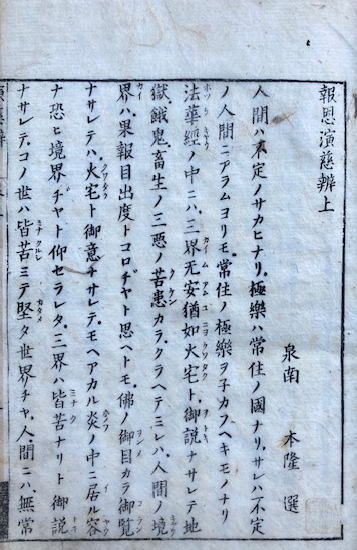 報恩演慈辨上
泉南 本隆 選
人間ハ不定ノサカヒナリ。極樂ハ常住ノ國ナリ。サレハ不定
ノ人間ニアラムヨリモ。常住ノ極樂ヲ子カフヘキモノナリ
法華經ノ中ニハ。三界无安猶如火宅ト。御説ナサレテ地
獄。餓鬼。畜生ノ三惡ノ苦患カラ。クラヘテミレハ。人間ノ境
界ハ。果報目出度トコロヂヤト思ヘトモ。佛ノ御目カラ御覧
ナサレテハ。火宅ト御意チサレテ。モヘアカル炎ノ中ニ居ル容
ナ恐ヒ境界ヂヤト仰セラレタ。三界ハ皆苦ナリト御説
ナサレテ。コノ世ハ皆苦ミテ堅タ世界チヤ。人間ニハ無常